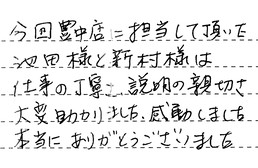 今回豊中店に担当して頂いた
池田様と新村様は
仕事の丁寧、説明の親切さ
大変助かりました、感動しました
本当にありがとうございました